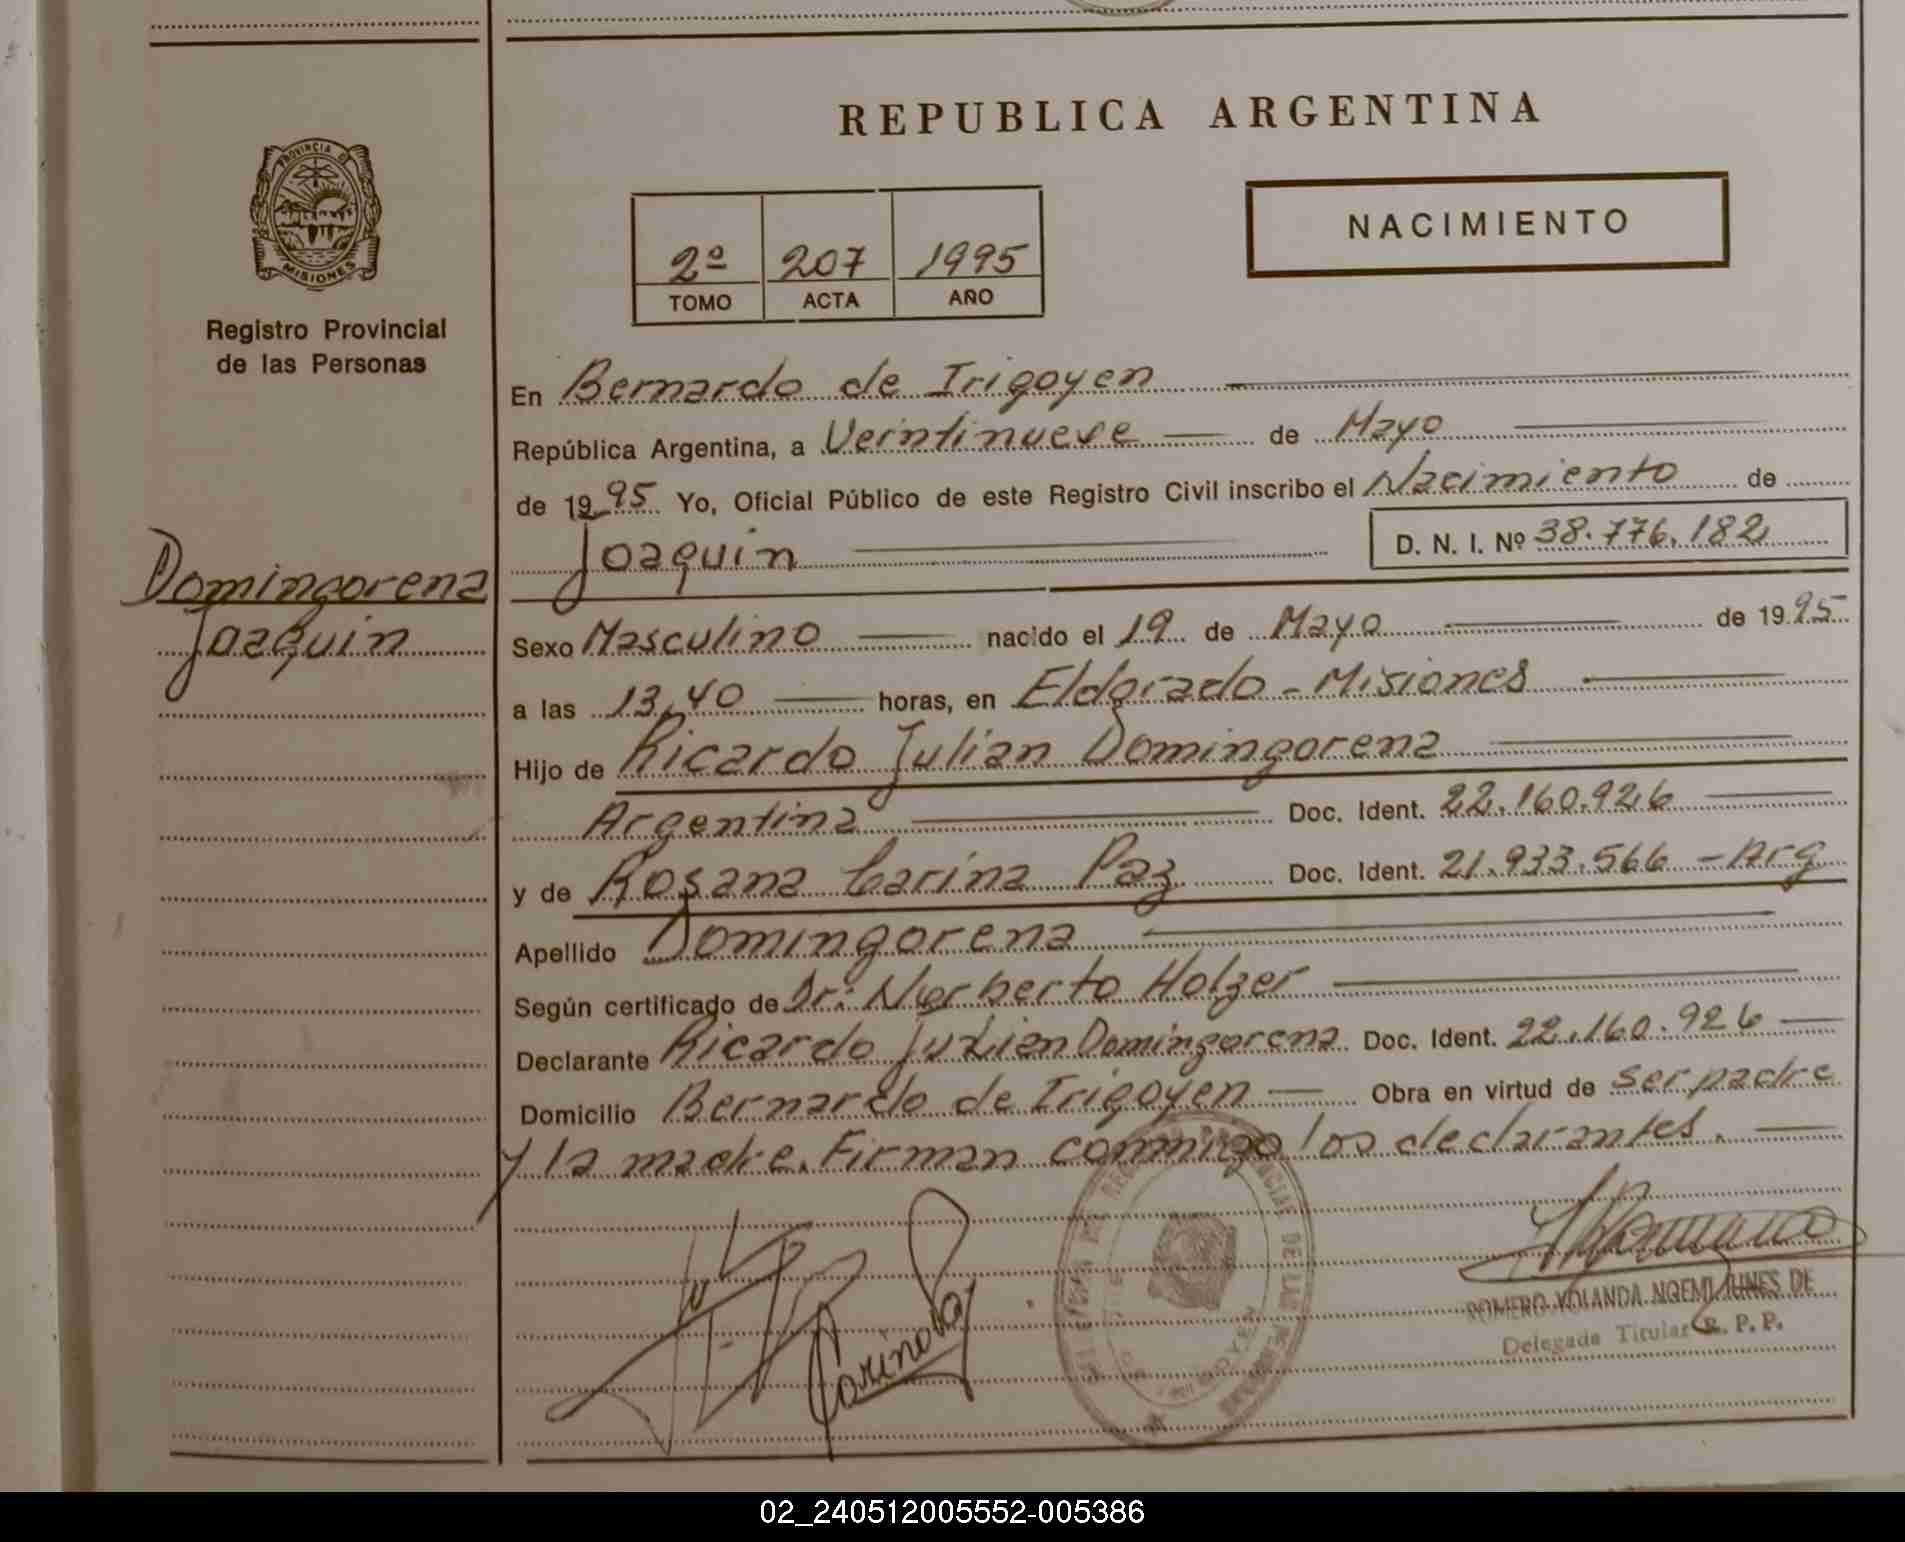 REPUBLICA ARGENTINA
PROVINCIA DE
MISIONES
Registro Provincial
de las Personas
2º 207 1995
TOMO ACTA AÑO
NACIMIENTO
En Bernardo de Irigoyen
República Argentina, a Veintinueve de Mayo
de 1995 Yo, Oficial Público de este Registro Civil inscribo el Nacimiento de
Joaquin D. N. I. Nº 38.776.182
Domingorena
Joaquin
Sexo Masculino nacido el 19 de Mayo de 1995
a las 13,40 horas, en Eldorado - Misiones
Hijo de Ricardo Julian Domingorena
Argentina Doc. Ident. 22.160.926
y de Rosana Carina Paz Doc. Ident. 21.933.566 - Arg
Apellido Domingorena
Según certificado de Dr. Norberto Holzer
Declarante Ricardo Julian Domingorena Doc. Ident. 22.160.926
Domicilio Bernardo de Irigoyen Obra en virtud de ser padre
y la madre. Firman conmigo los declarantes.
Carina Paz
DE LAS
ROMERO YOLANDA NOEMI DE
Delegada Titular R. P. P.
02_240512005552-005386